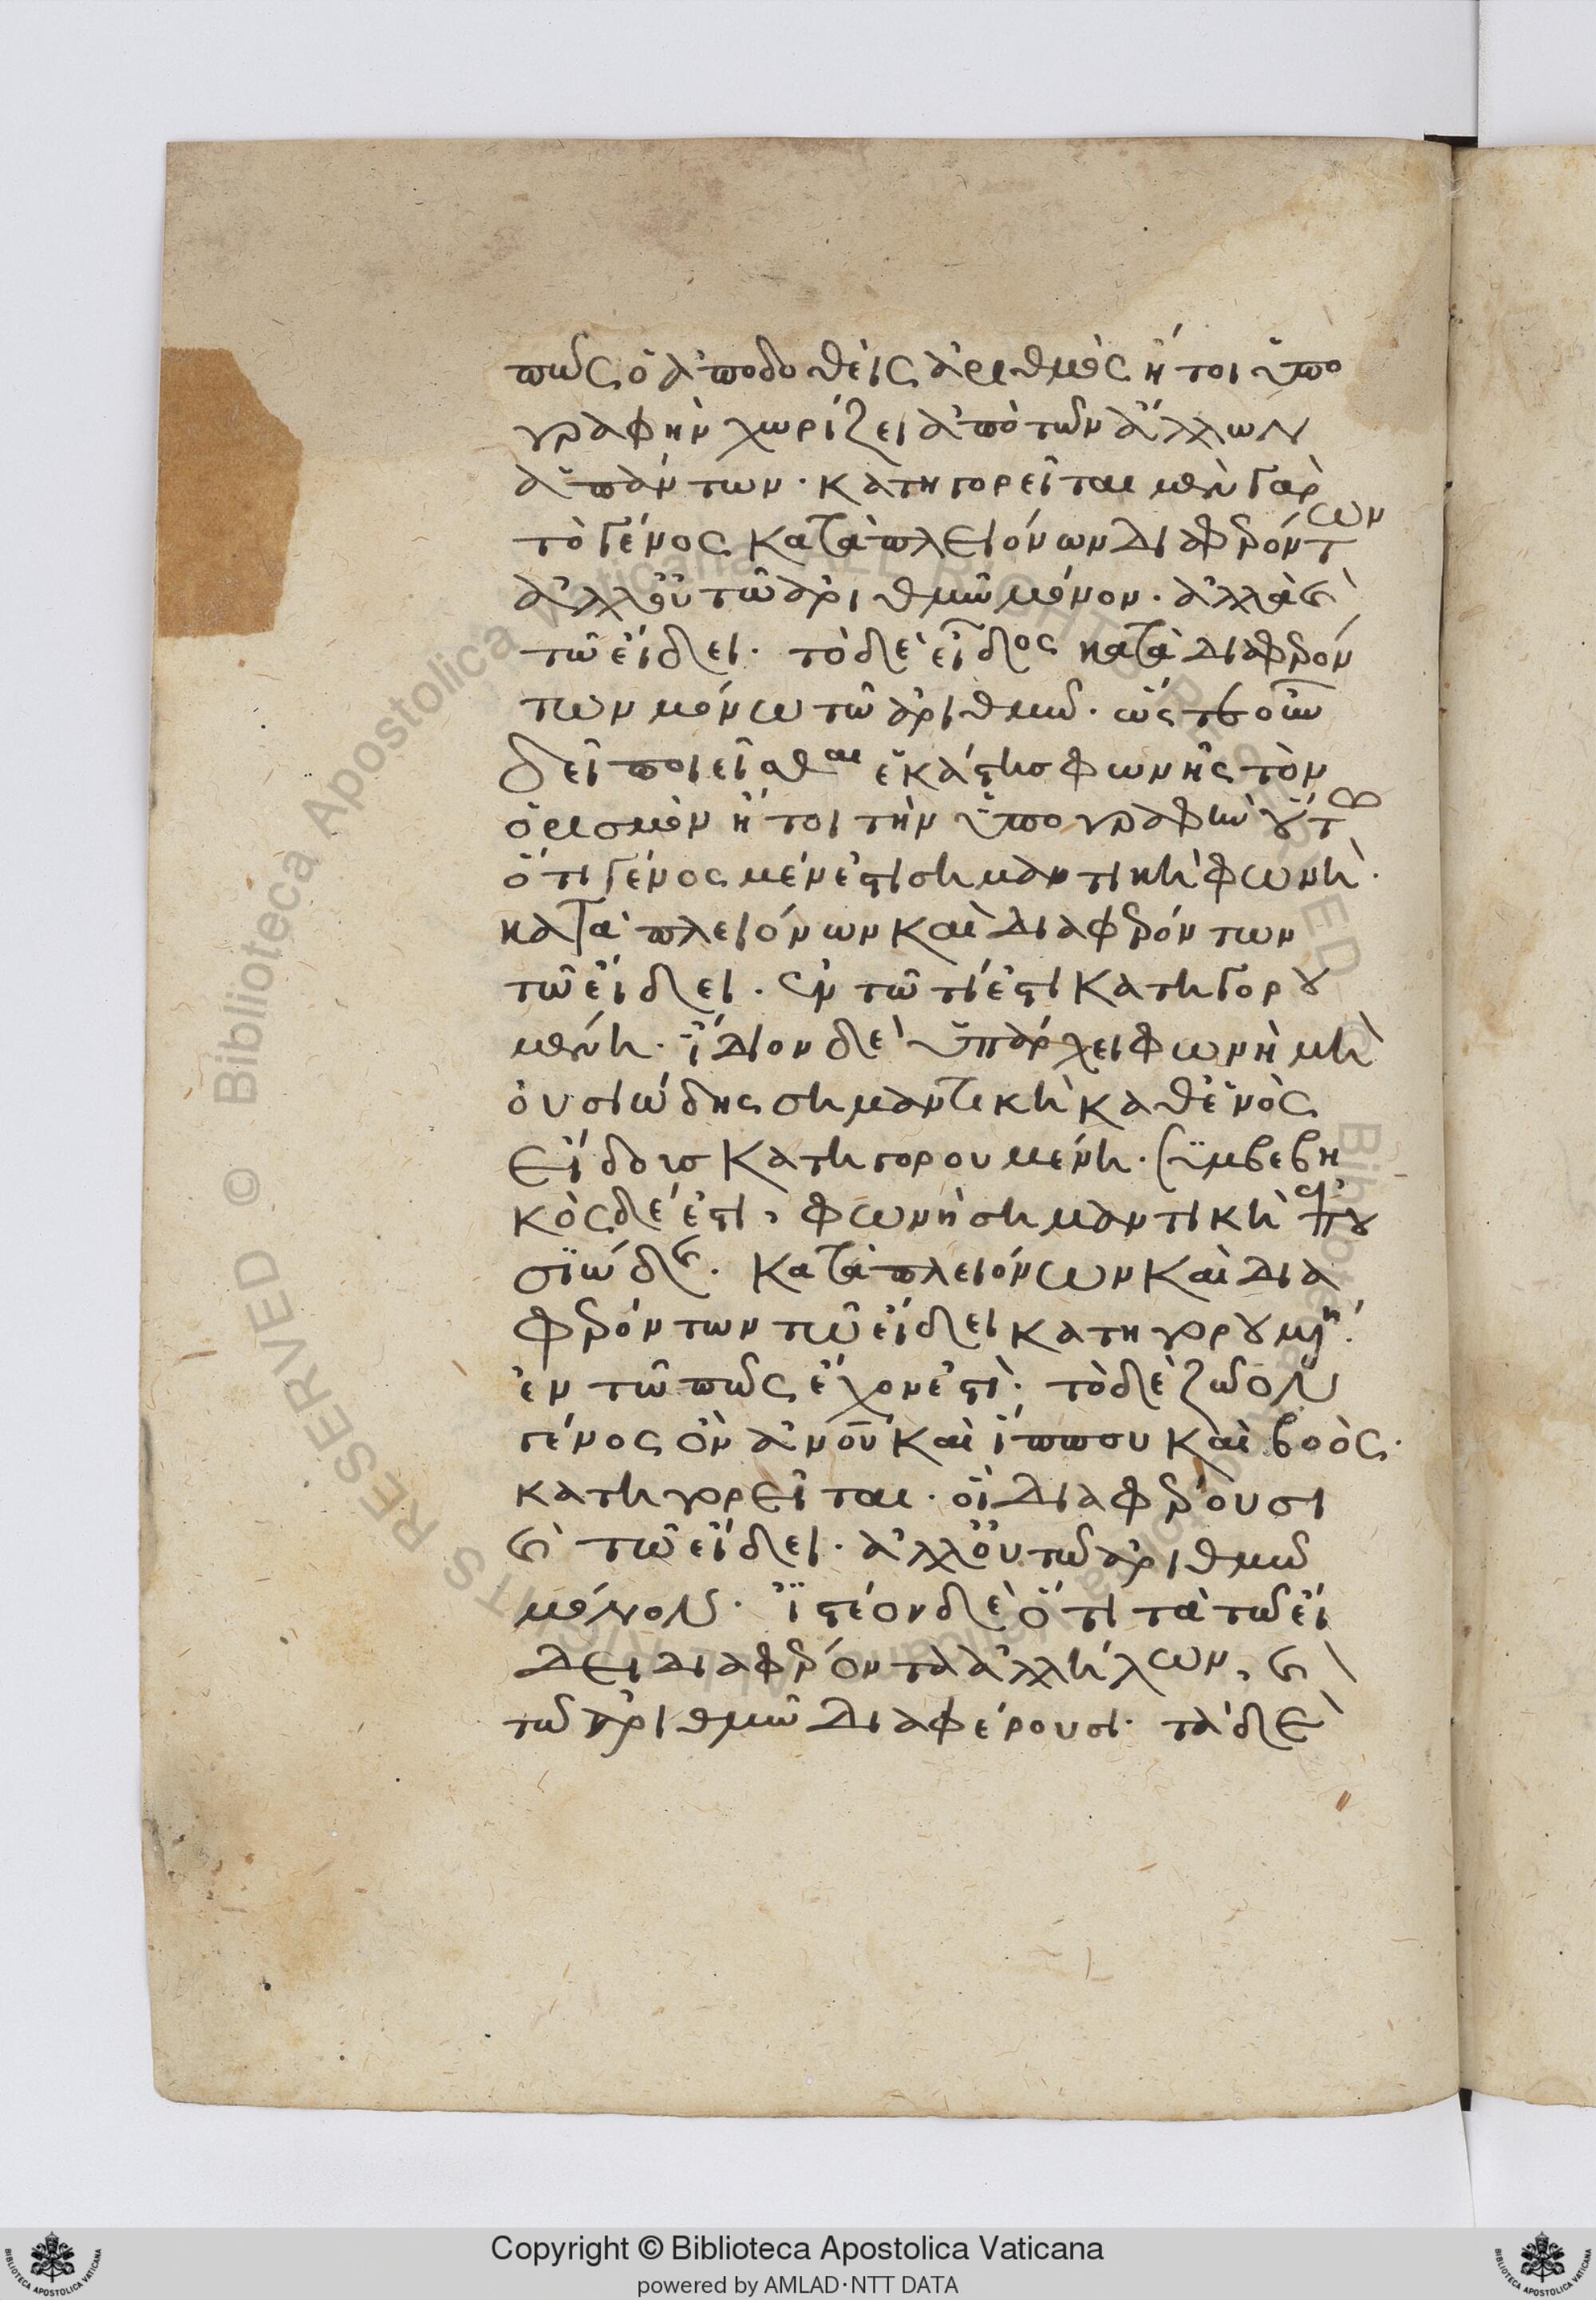 πῶς ὁ ἀποδοθεὶς ἀριθμὸς ἤτοι ὑπο
γραφὴν χωρίζει ἀπὸ τῶν ἄλλων
ἁπάντων· κατηγορεῖται μὲν γὰρ
τὸ γένος κατὰ πλειόνων διαφερόντων
ἀλλ' οὐ τῶ ἀριθμῶ μόνον· ἀλλὰ καὶ
τῶ εἴδει· τὸ δὲ εἶδος κατὰ διαφερόν
των μόνω τῶ ἀριθμῶ· ὥστε οὖν
δεῖ ποιεῖσθαι ἑκάστης φωνῆς τὸν
ὁρισμὸν ἤτοι τὴν ὑπογραφὴν οὕτω
ὅτι γένος μέν ἐστι σημαντικὴ φωνὴ·
κατὰ πλειόνων καὶ διαφερόντων
τῶ εἴδει· ἐν τῶ τί ἐστι κατηγορου
μένη· ἴδιον δὲ ὑπάρχει φωνὴ μὴ
οὐσιώδης σημαντικὴ καθ' ἑνὸς
εἴδους κατηγορουμένη· συμβεβη
κὸς δέ ἐστι, φωνὴ σημαντικὴ ἐπου
σιώδης· κατὰ πλειόνων καὶ δια
φερόντων τῶ εἴδει κατηγορουμένη·
ἐν τῶ πῶς ἔχον ἐστὶ· τὸ δὲ ζῶον
γένος ὂν ἀνου καὶ ἵππου καὶ βοὸς·
κατηγορεῖται· οἳ διαφέρουσι
καὶ τῶ εἴδει· ἀλλ' οὐ τῶ ἀριθμῶ
μόνον· ἰστέον δὲ ὅτι τὰ τῶ εἴ
δει διαφέροντα ἀλλήλων, καὶ
τῶ ἀριθμῶ διαφέρουσι· τὰ δὲ
Copyright © Biblioteca Apostolica Vaticana
powered by AMLAD·NTT DATA